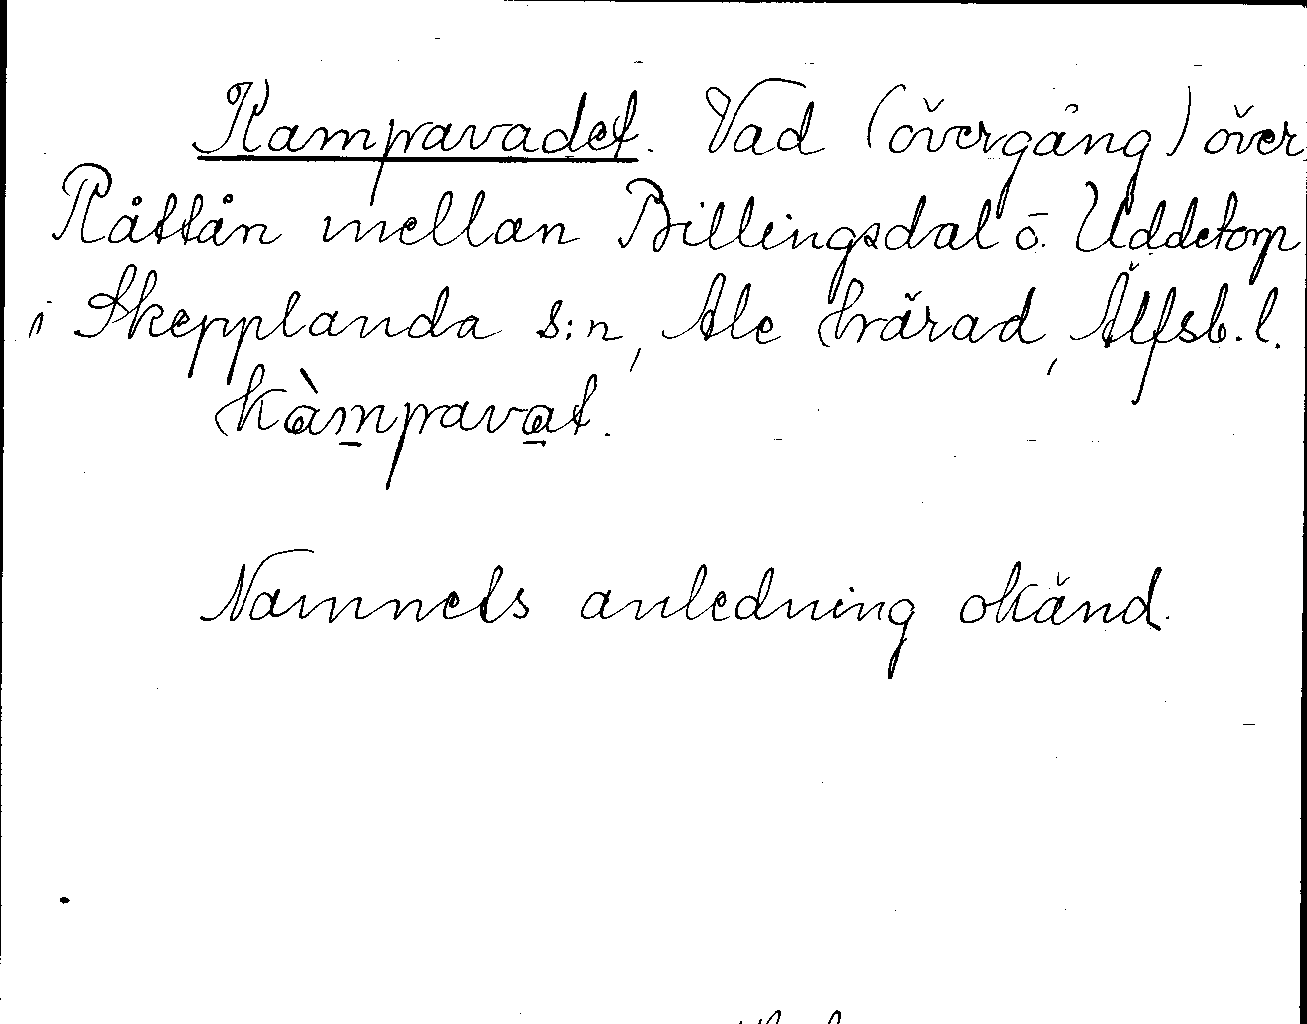 Kampavadet. Vad (övergång) över
Råttån mellan Billingsdal o. Uddetorp
i Skepplanda s:n, Ale härad, Älfsb. l.
kàmpavat.
Namnets anledning okänd.